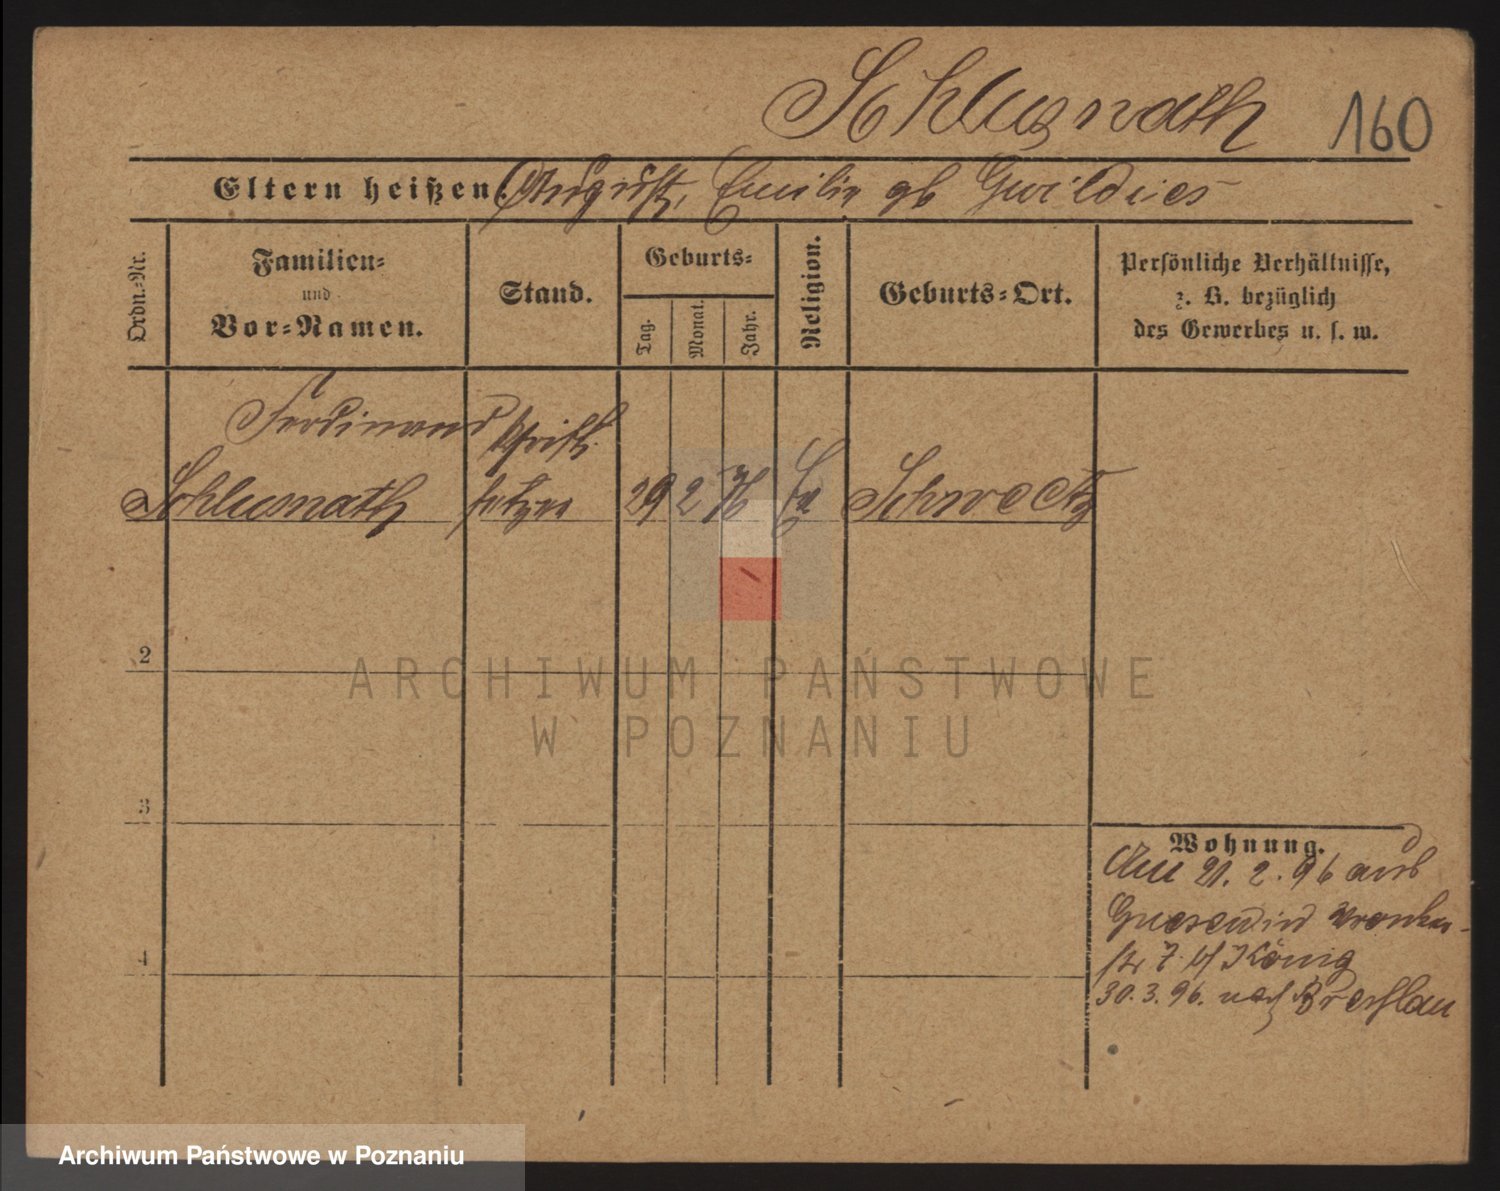 Schlusnath 160
Eltern heißen: August, Emilie gb Gwildies
Ordn.-Nr.
Familien-
und
Vor-Namen.
Stand.
Geburts-
Tag.
Monat.
Jahr.
Religion.
Geburts-Ort.
Persönliche Verhältnisse,
z. B. bezüglich
des Gewerbes u. s. w.
Ferdinand Schrift
Schlusnath setzer 29 2 76 Ev Schwetz
2
3
4
Wohnung.
Am 21. 2. 96 aus
Gnesen in Wronker-
str 7 b/ König
30. 3. 96. nach Breslau
ARCHIWUM PAŃSTWOWE
W POZNANIU
Archiwum Państwowe w Poznaniu